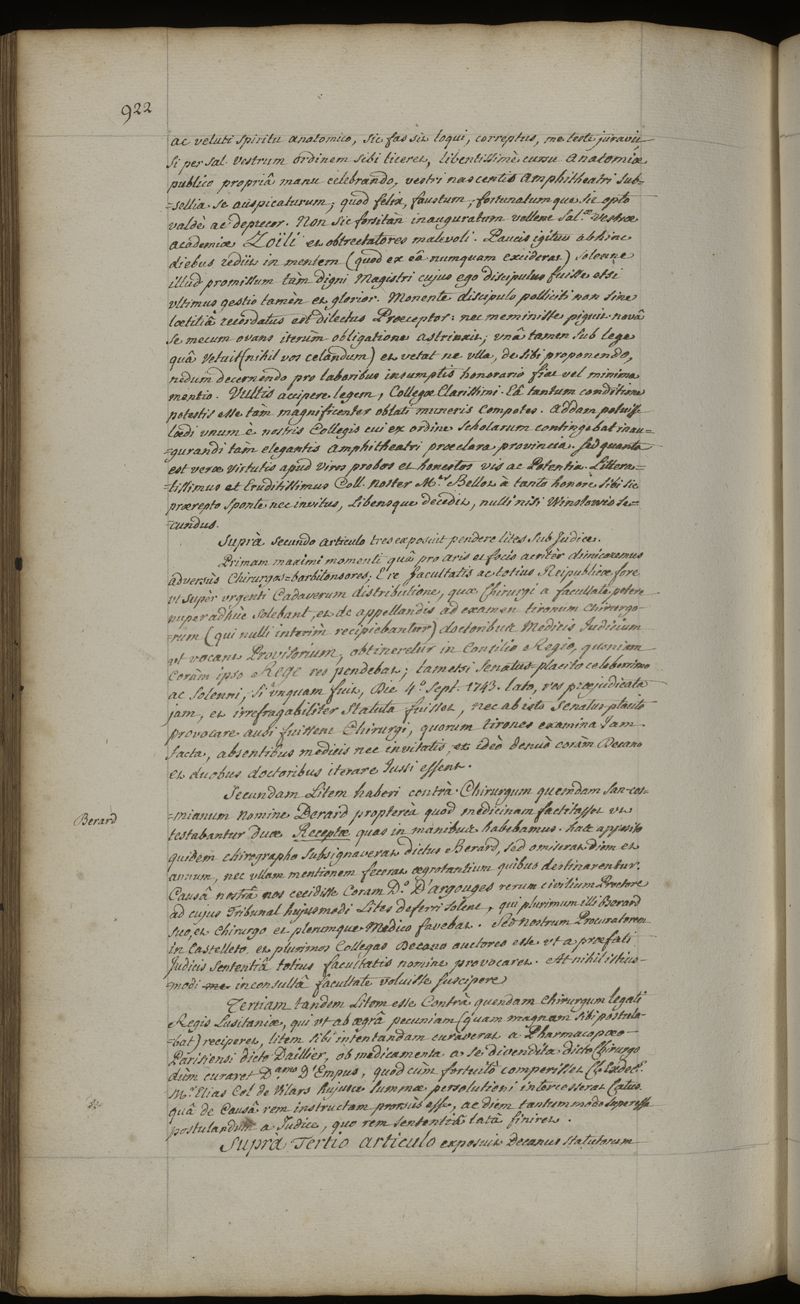 922
ac veluti spiritu anatomico, sic fas sit loqui, correptus, me teste juravit
si per sal. vestrum ordinem sibi liceret, libentissimè cursu anatomiæ
publico propriâ manu celebrando, vestri nascentis amphitheatri sub=
=sellia se auspicaturum; quod felix, faustum, fortunatumque sic opto
valdè ac deprecor. Non sic forsitàn inauguratum vellent Sal. vestræ
academiæ Zoïli et obtrectatores malevoli. Paucis igitur abhinc
diebus rediit in mentem (quod ex eâ numquam exciderat) solemne
illud promissum tàm digni Magistri cujus ego discipulus fuisse etsi
vltimus gestio tamèn et glorior. Monente discipulo polliciti non sine
lœtitiâ recordatus est dilectus Præceptor: nec meminisse piguit novâ
se mecum ovans iterùm obligatione astrinxit; vnâ tamen sub lege
quâ vetuit (nihil vos celandum) et vetat ne vlla, de sibi proponendo,
nedum decernendo pro laboribus insumptis honorario fiat vel minima
mentio. Vultis accipere legem, Collegæ Clarissimi. Eâ tantum conditione
potestis esse tàm magnificenter oblati muneris compotes. Addam potuisse
lædi vnum è nostris Collegis cui ex ordine scholarum contingebat inau=
=gurandi tàm elegantis amphitheatri præclara provincia. Sed quanta
est veræ virtutis apud viros probos et honestos vis ac Potentia. Littera=
=tissimus et Eruditissimus Coll. noster M. Bellot à tanto honore sibi sic
prærepto sponte nec invitus, libensque decedit, nulli nisi Winslowio se=
cundus.
Suprà secundo articulo tres exposuit pendere lites sub Judice.
Primam maximi momenti quâ pro aris et focis acritèr dimicaremus
adversùs Chirurgos=barbitonsores; E re facultatis ac totius Reipublicæ fore
vt super vrgenti Cadaverum distributione, quæ Chirurgi a facultate petere
nuper adhuc solebant, et de appellandis ad examen tironum chirurgo=
=rum (qui nulli interim recipiebantur) doctoribus Medicis Judicium
vt vocant Provisorium, obtineretur in Consilio Regio, quoniam
coràm ipso Rege res pendebat; tametsi Senatus=placito celeberrimo
ac solenni, si vnquam fuit, Die 4.º Sept. 1743. lato, res præjudicata
jam, et irrefragabiliter statuta fuisset, nec ab isto Senatus-placito
provocare ausi fuissent Chirurgi, quorum tirones examina jam
facta, absentibus medicis nec invitatis, et ideò denuò coràm Decano
et duobus doctoribus iterare jussi essent.
Secundam Litem haberi contrà Chirurgum quemdam San-cos=
=mianum nomine Berard proptereà quod medicinam factitasset vt
Berard
testabantur duæ Receptæ quas in manibus habebamus. has apposito
quidem chirographo subsignaverat dictus Berard, sed omiserat diem et
annum, nec vllam mentionem fecerat ægrotantium quibus destinarentur.
Causâ nostrâ nos cecidisse coram D.º D'argouges rerum civilium Prætore
ad cujus Tribunal hujusmodi Lites deferri solent, qui plurimum illi Berard
suo, et Chirurgo et plerumque Medico favebat. Sed nostrum Procuratorem
in Castelleto, et plurimos Collegas Decano auctores esse vt a præfati
Judicis sententiâ totius facultatis nomine provocaret. At nihil istius=
=modi inconsultâ facultate voluisse suscipere
Tertiam tandem Litem esse Contrà quendam chirurgum legati
Regis Lusitaniæ, qui vt ab ægrâ pecuniam (quam magnam sibi postula=
=bat) reciperet, litem sibi intentandam curaverat a Pharmacopæo
Parisiensi dicto Daillier, ob medicamenta a se divendita dicto Chirurgo
dùm curaret D. D'Empus, quod cùm fortuitò comperisset
M. Elias Col de Vilars hujusce summæ persolutioni intercesserat
quâ de Causâ rem instructam prorsùs esse, ac diem tantummodo superesse
postulandum a Judice, quo rem sententiâ latâ finiret.
Suprà Tertio articulo exposuit Decanus statutorum